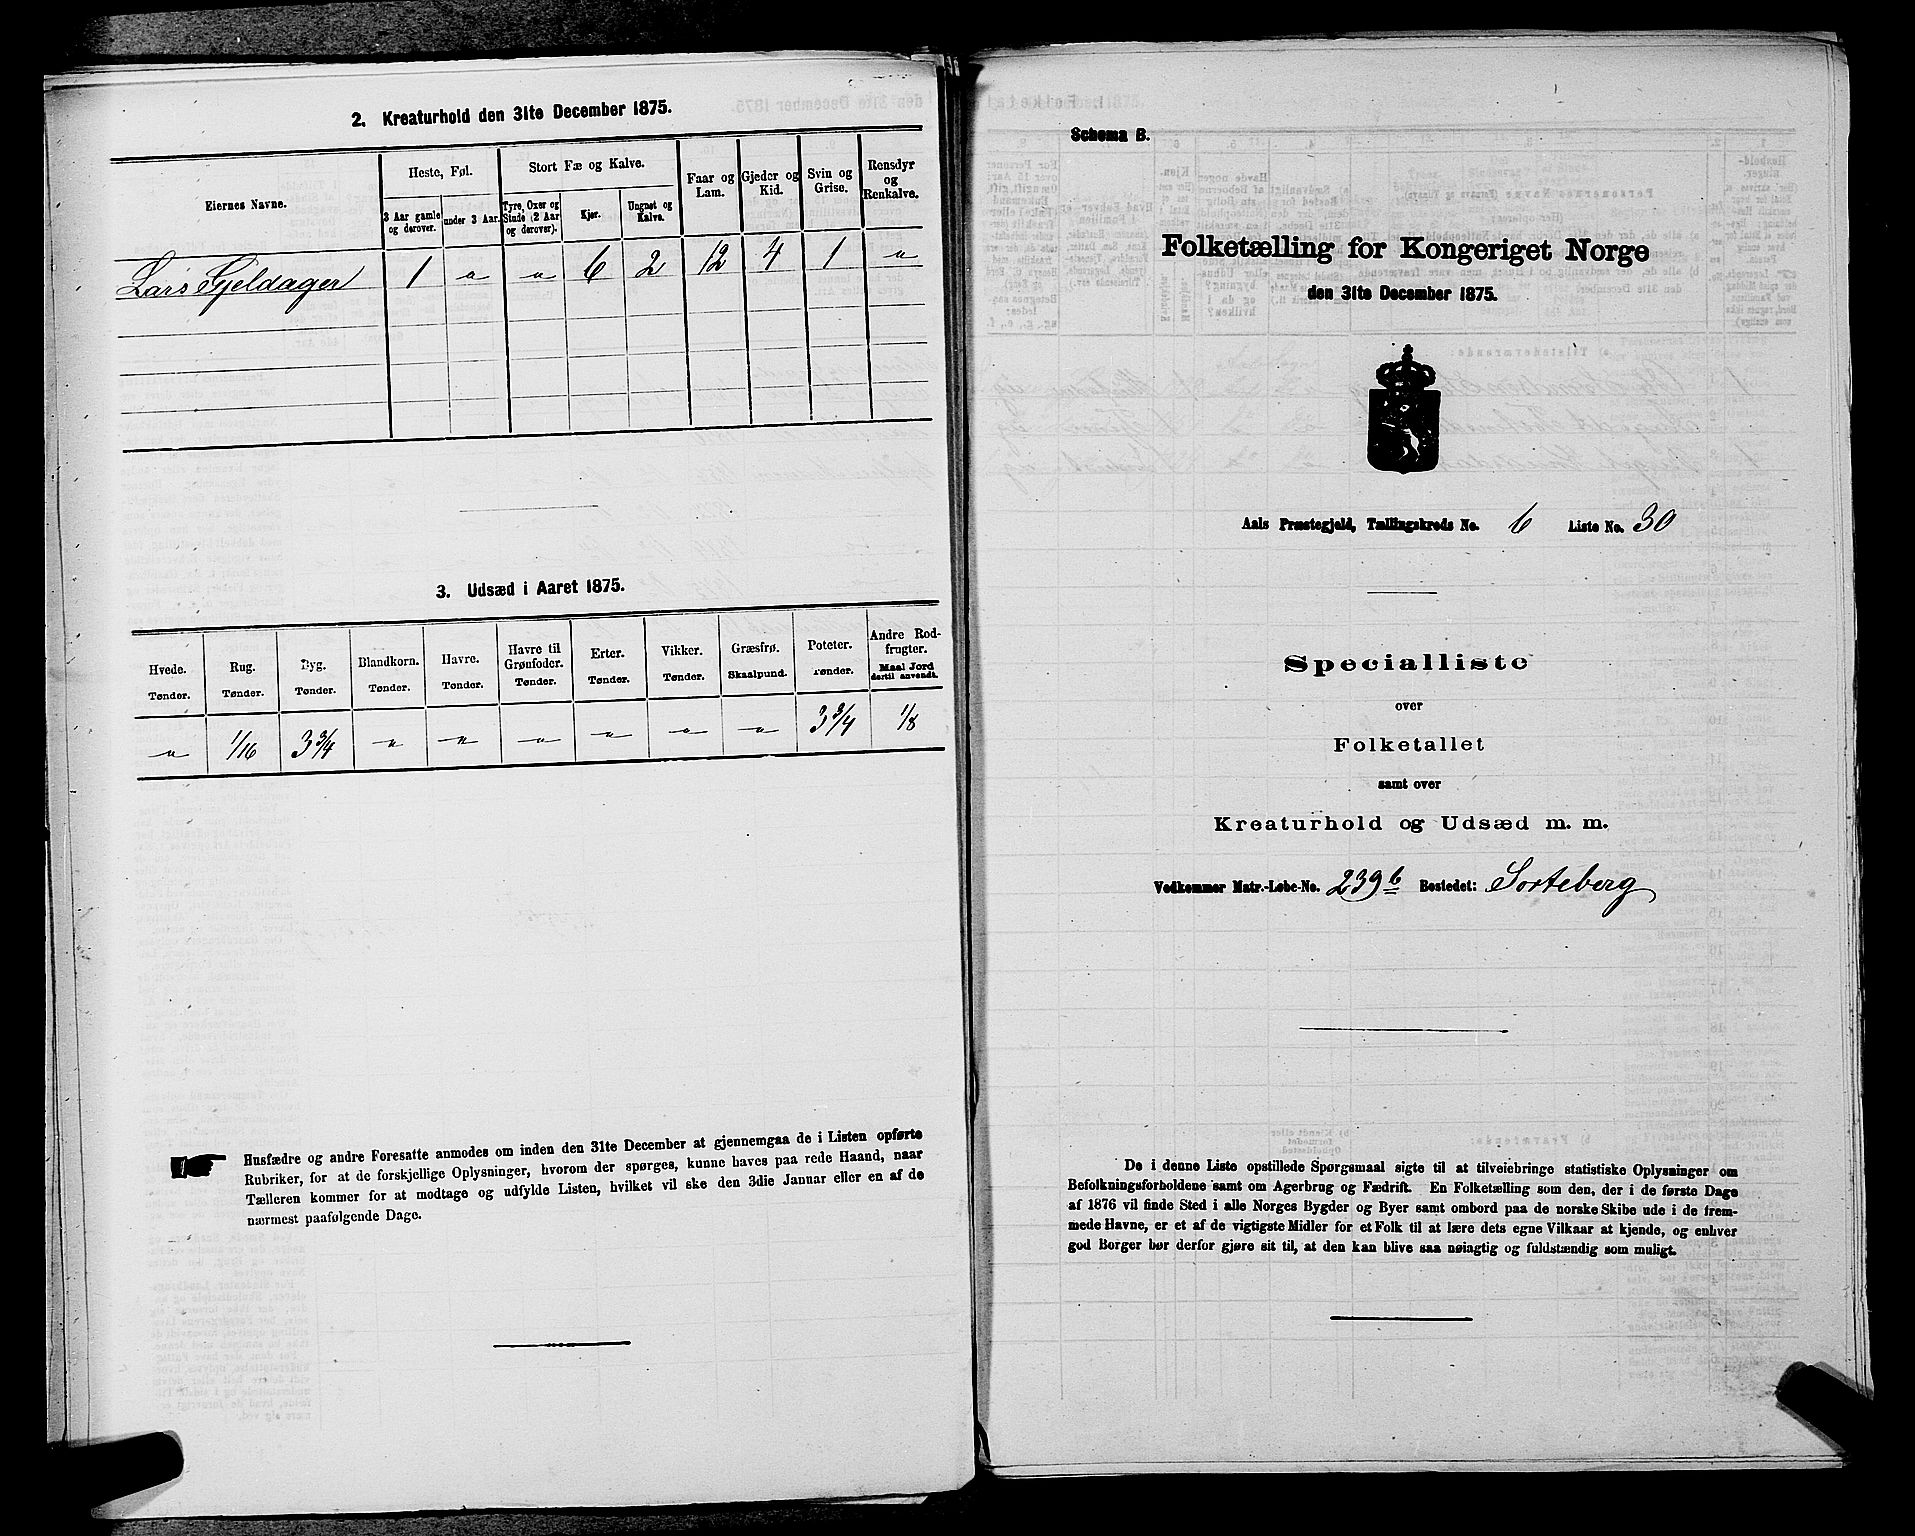 2. Kreaturhold den 31te December 1875.
Eiernes Navne.
Heste, Føl.
Stort Fæ og Kalve.
Faar og Lam.
Gjeder og Kid.
Svin og Grise.
Rensdyr og Renkalve.
3 Aar gamle og derover.
under 3 Aar.
Tyre, Oxer og Stude (2 Aar og derover).
Kjør.
Ungnet og Kalve.
Lars Gjeldager 1 " " 6 2 12 4 1 "
3. Udsæd i Aaret 1875.
Hvede. Tønder.
Rug. Tønder.
Byg. Tønder.
Blandkorn. Tønder.
Havre. Tønder.
Havre til Grønfoder. Tønder.
Erter. Tønder.
Vikker. Tønder.
Græsfrø. Skaalpund.
Poteter. Tønder.
Andre Rodfrugter. Maal Jord dertil anvendt.
" 1/16 3 3/4 " " " " " " 3 3/4 1/8
Husfædre og andre Foresatte anmodes om inden den 31te December at gjennemgaa de i Listen opførte
Rubriker, for at de forskjellige Oplysninger, hvorom der spørges, kunne haves paa rede Haand, naar
Tælleren kommer for at modtage og udfylde Listen, hvilket vil ske den 3die Januar eller en af de
nærmest paafølgende Dage.
Schema B.
Folketælling for Kongeriget Norge
den 31te December 1875.
Aals Præstegjeld, Tællingskreds No. 6 Liste No. 30
Specialliste
over
Folketallet
samt over
Kreaturhold og Udsæd m. m.
Vedkommer Matr.-Løbe-No. 239 b Bostedet: Sorteberg
De i denne Liste opstillede Spørgsmaal sigte til at tilveiebringe statistiske Oplysninger om
Befolkningsforholdene samt om Agerbrug og Fædrift. En Folketælling som den, der i de første Dage
af 1876 vil finde Sted i alle Norges Bygder og Byer samt ombord paa de norske Skibe ude i de frem-
mede Havne, er et af de vigtigste Midler for et Folk til at lære dets egne Vilkaar at kjende, og enhver
god Borger bør derfor gjøre sit til, at den kan blive saa nøiagtig og fuldstændig som muligt.